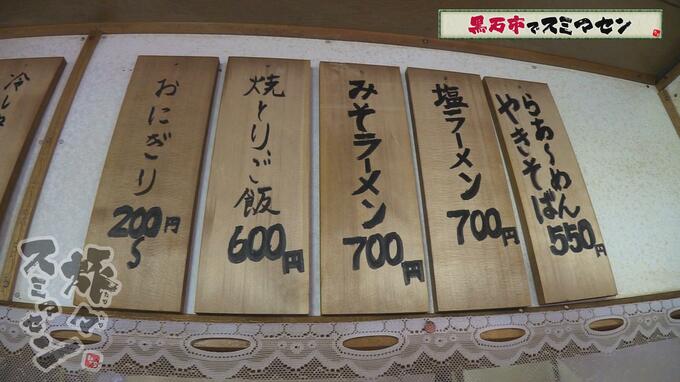 黒石市でスミマセン
らあ〜めん
やきそば
550円
塩ラーメン
700円
みそラーメン
700円
焼とりご飯
600円
おにぎり
200円
〜
スミマセン